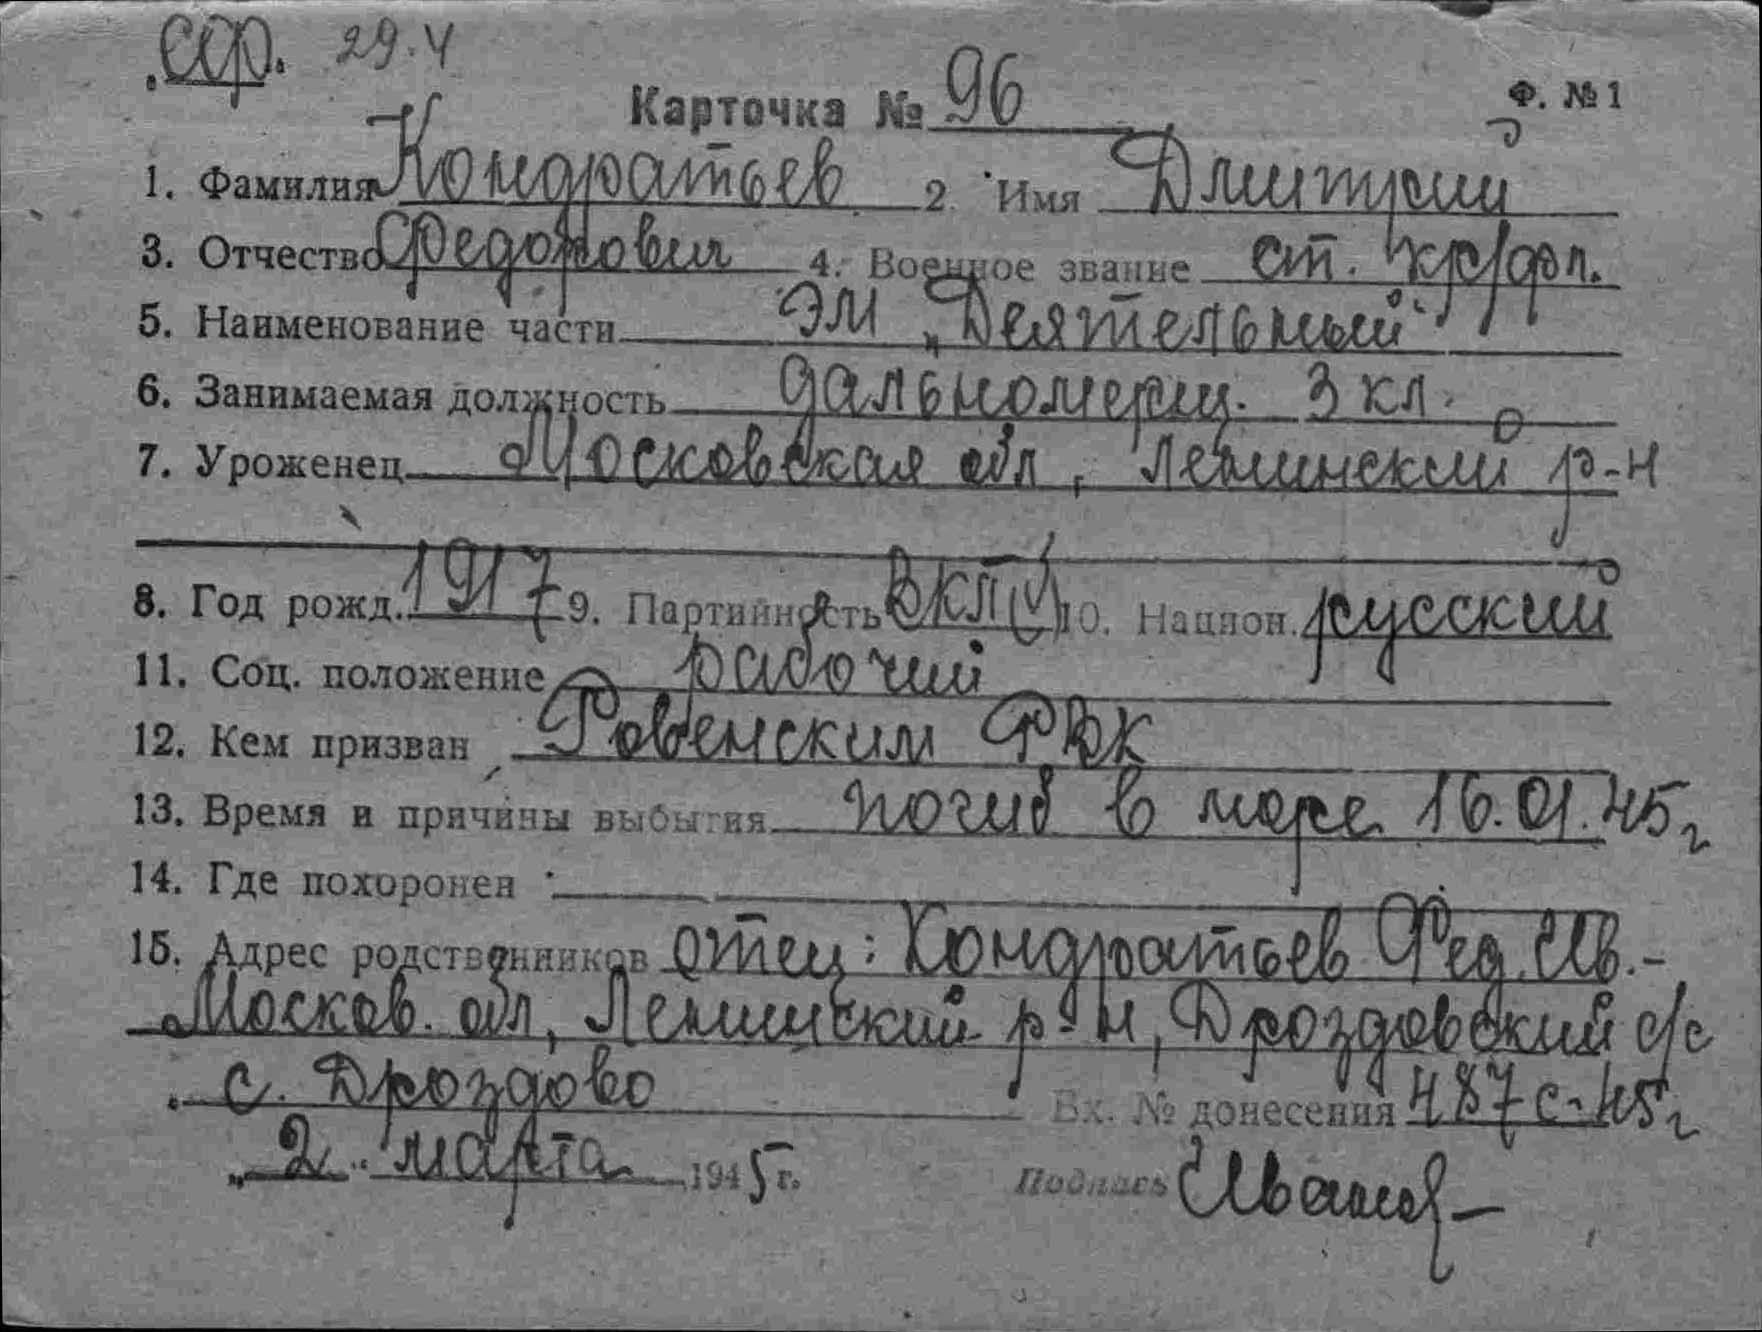 СФ. 29.4
Карточка № 96 Ф. № 1
1. Фамилия Кондратьев 2. Имя Дмитрий
3. Отчество Федорович 4. Военное звание ст. кр/фл.
5. Наименование части ЭМ „Деятельный"
6. Занимаемая должность дальномерщ. 3 кл.
7. Уроженец Московская обл, Ленинский р-н
8. Год рожд. 1917 9. Партийность ВКП(б) 10. Национ. русский
11. Соц. положение рабочий
12. Кем призван Ровенским РВК
13. Время и причины выбытия погиб в море 16.01.45 г
14. Где похоронен
15. Адрес родственников отец: Кондратьев Фед. Ив. -
Москов. обл, Ленинский р-н, Дроздовский с/с
с. Дроздово Вх. № донесения 487с-45г
„2" марта 1945 г. Подпись